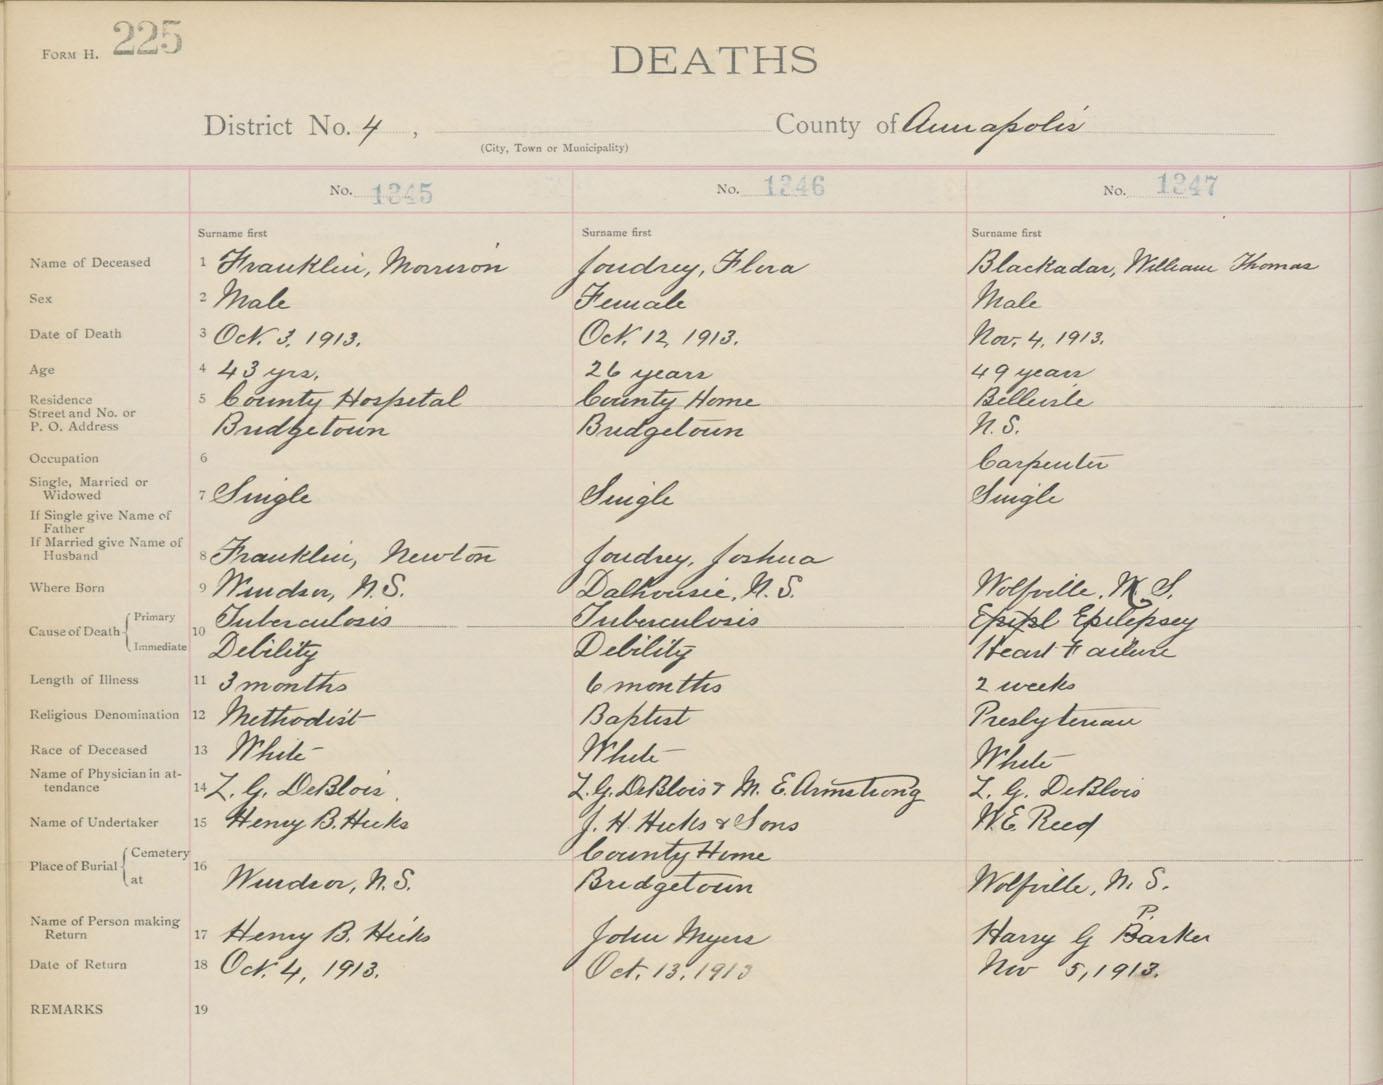 Form H. 225
DEATHS
District No. 4 , County of Annapolis
(City, Town or Municipality)
No. 1345 No. 1346 No. 1347
Surname first Surname first Surname first
Name of Deceased 1 Franklin, Morrison Joudrey, Flora Blackadar, William Thomas
Sex 2 Male Female Male
Date of Death 3 Oct. 3, 1913. Oct. 12, 1913. Nov. 4, 1913.
Age 4 43 yrs. 26 years 49 years
Residence 5 County Hospital County Home Belleisle
Street and No. or
P. O. Address Bridgetown Bridgetown N.S.
Occupation 6 Carpenter
Single, Married or
Widowed 7 Single Single Single
If Single give Name of
Father
If Married give Name of
Husband 8 Franklin, Newton Joudrey, Joshua
Where Born 9 Windsor, N.S. Dalhousie, N.S. Wolfville, N.S.
Cause of Death Primary 10 Tuberculosis Tuberculosis Epipl Epilepsey
Immediate Debility Debility Heart Failure
Length of Illness 11 3 months 6 months 2 weeks
Religious Denomination 12 Methodist Baptist Presbyterian
Race of Deceased 13 White White White
Name of Physician in at-
tendance 14 L. G. DeBlois. L.G. DeBlois & M. E. Armstrong L. G. DeBlois
Name of Undertaker 15 Henry B. Hicks J. H. Hicks & Sons W.E. Reed
Place of Burial Cemetery 16 County Home
at Windsor, N.S. Bridgetown Wolfville, N.S.
Name of Person making
Return 17 Henry B. Hicks John Myers Harry G P. Barker
Date of Return 18 Oct. 4, 1913. Oct. 13, 1913 Nov 5, 1913.
REMARKS 19